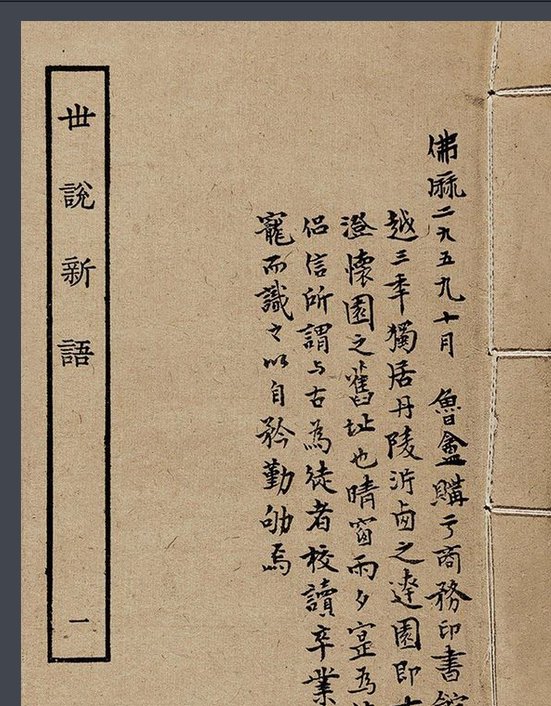 佛厤二九五九十月 魯盦購亏商務印書館
越三年獨居丹陵沜卥之達園即
澄懷園之舊址也晴窗雨夕寔為
侣信所謂与古為徒者校讀卒業
寵而識之以自矜勤劬焉
世說新語
一